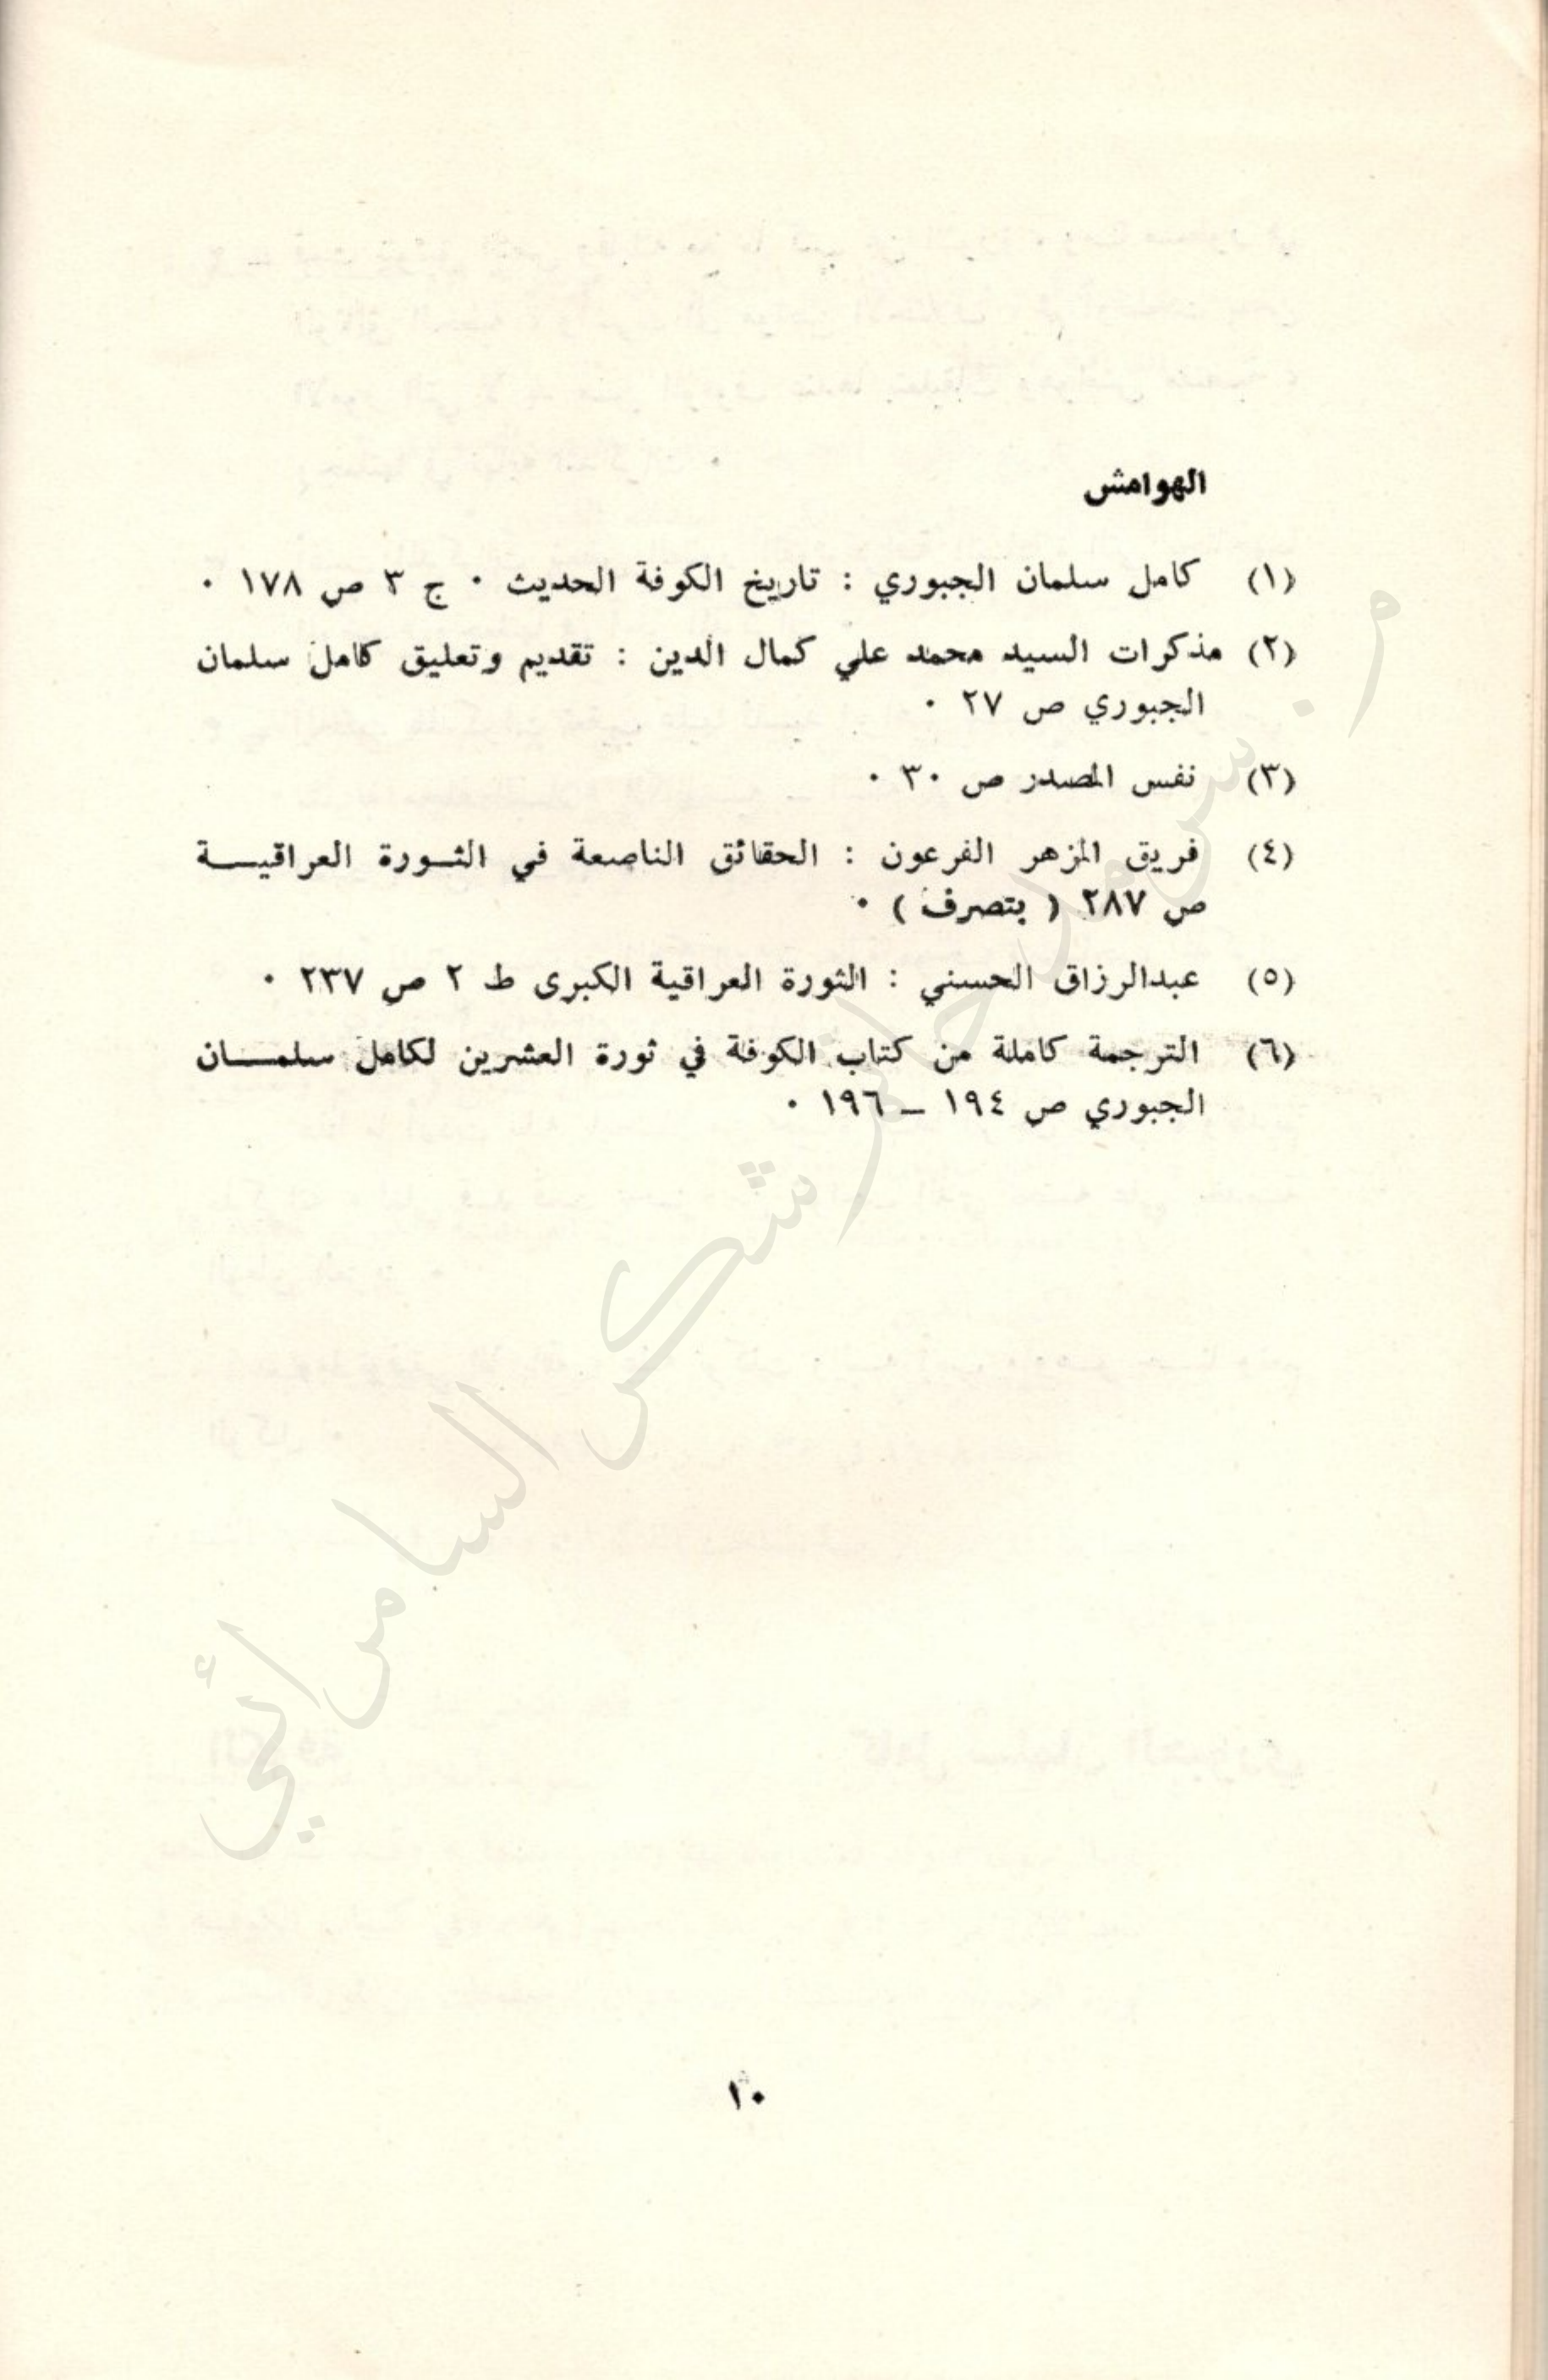 الهوامش
(١) كامل سلمان الجبوري : تاريخ الكوفة الحديث ٠ ج ٣ ص ١٧٨ ٠
(٢) مذكرات السيد محمد علي كمال الدين : تقديم وتعليق كامل سلمان
الجبوري ص ٢٧ ٠
(٣) نفس المصدر ص ٣٠ ٠
(٤) فريق المزهر الفرعون : الحقائق الناصعة في الثــورة العراقيـــة
ص ٢٨٧ ( بتصرف ) ٠
(٥) عبدالرزاق الحسني : الثورة العراقية الكبرى ط ٢ ص ٢٣٧ ٠
(٦) الترجمة كاملة من كتاب الكوفة في ثورة العشرين لكامل سلمـــان
الجبوري ص ١٩٤ ــ ١٩٦ ٠
شاكر السامرائي
١٠